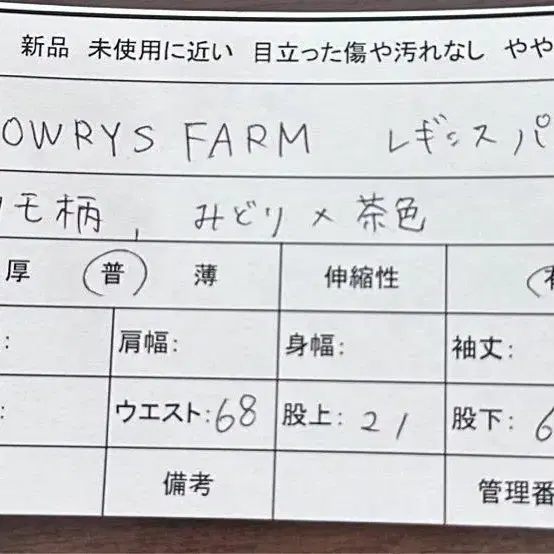 新品 未使用に近い 目立った傷や汚れなし やや
OWRYS FARM レギンスパ
モ柄, みどり×茶色
厚 普 薄 伸縮性 有
: 肩幅: 身幅: 袖丈:
: ウエスト:68 股上:21 股下:6
備考 管理番